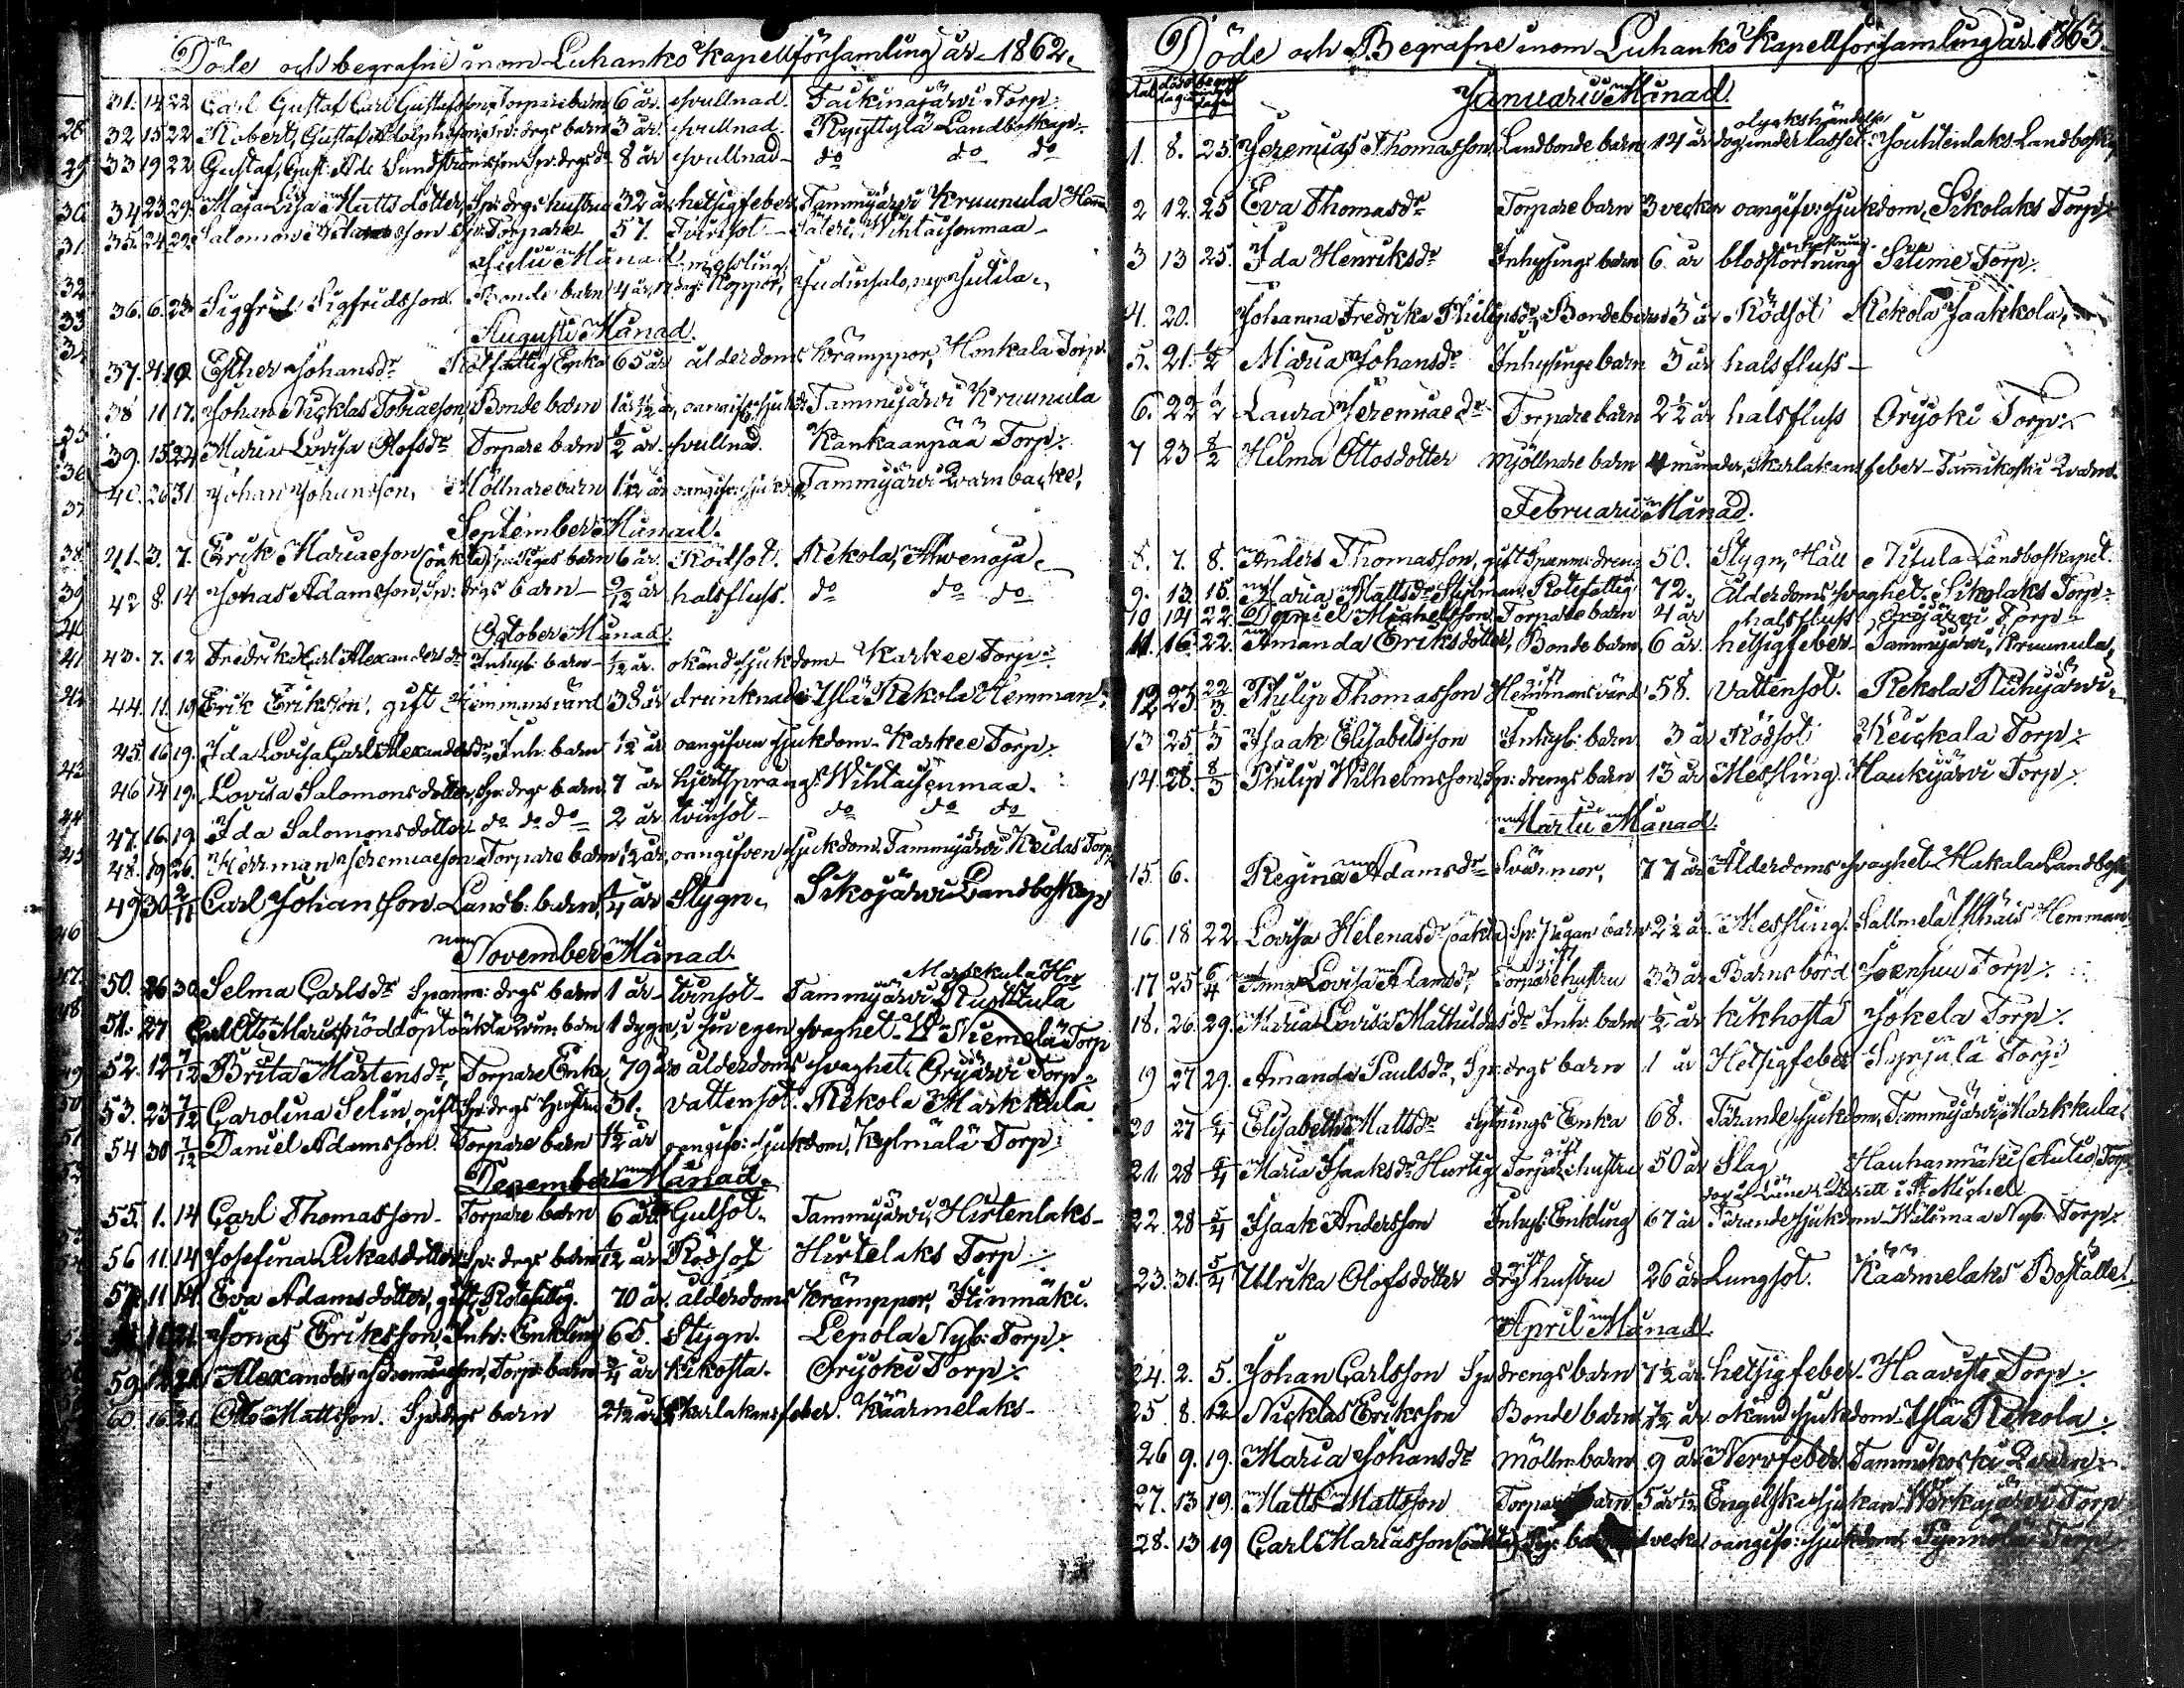 Döde och begrafne inom Luhanko Kapellförsamling år 1862.
31. 14 22 Carl Gustaf Carl Gustafsson, Torpare barn 6 år. svullnad. Torp:
28 32 15 22 Robert, Gustaf Adolphsson, Sp: drgs barn 3 år svullnad. Landboskap:
29 33 19 22 Gustaf, Gust: Ad: Sundströmsson Sp: drgs do 8 år svullnad do do do
30 34 23 29. Maja Lisa Mattsdotter, Sp: drgs hustru 32 år hetsigfeber, Tammijärvi Kruunula
31. 35. 24 29 Salomon Torpare 57. Tvinsot Wihtaisenmaa
Julii Månad.
32 messling,
36. 6. Sigfrid Sigfridsson. Bonde barn 4 år, 17 dag: Koppor, Judinsalo,
33 Augusti Månad.
37. 4. 10. Esther Johansdr Rotfattig Enka 65 år ålderdoms krämppor, Honkala Torp
38 11 17. Johan Nicklas Tobiaeson, Bonde barn oangifv: sjukd: Tammijärvi Kruunula
35 39. 15 24 Maria Lovisa Olofsdr Torpare barn 1/2 år. svullnad. Kankaanpää Torp:
36 40. 26 31 Johan Johansson, Möllnare barn oangifv: sjukd: Tammijärvi Qvarnbacke,
37 September Månad.
38 41. 3. 7. Erik Mariaeson (oäkta) Sp: Pigas barn 6 år. Rödsot. Rekola,
39 42 8. 14 Johas Adamsson, Sp: drgs barn 9/12 år halsfluss. do do do
40 October Månad.
41 43. 7. 12 Fredrik Carl Alexandersdr Inhys: barn 1/12 år. okänd sjukdom Karkee Torp:
42 44. 11. 19 Erik Eriksson, gift Hemmansvärd 38 år drunknade Yslä Rekola Hemman:
45. 16 19. Ida Lovisa Carl Alexandersdr, Inh: barn 1/2 år oangifven sjukdom Karkee Torp:
43 46 14 19. Lovisa Salomonsdotter, Sp: drgs barn 7 år hjertsprång. Wihtaisenmaa.
44 47. 16. 19. Ida Salomonsdotter do do do 2 år tvinsot do do do
45 48. 19 26. Herrman Jeremiaeson Torpare barn 1/2 år, oangifven sjukdom. Tammijärvi Keidas Torp:
49 30 2/11 Carl Johansson Landb: barn, 1/4 år Stygn. Sikojärvi Landboskap
46 November Månad.
47. 50. 26 30 Selma Carlsdr Spanm: drgs barn 1 år tvinsot Tammijärvi
48 51. 27 Carl Otto 1 dygn, i sin egen svaghet. Niemelä Torp
49 52. 12 7/12 Brita Mårtensdr, Torpare Enka, 79 år ålderdoms svaghet, Orijärvi Torp:
50 53. 23 7/12 Carolina Selin, gift Sp: drgs hustru 31. vattensot. Rekola Markkula
51. 54 30 7/12 Daniel Adamsson. Torpare barn 1/2 år oangifv: sjukdom, Kylmälä Torp:
52 December Månad.
55. 1. 14 Carl Thomasson Torpare barn 6 år. Gulsot. Tammijärvi, Hirtenlaks
56 11. 14 Josefina Lukasdotter Sp: drgs barn 1/12 år Rödsot Hirtelaks Torp:
57. 11 14. Eva Adamsdotter, gift, Rotefattig. 70 år. ålderdoms krämppor, Hinmäki.
Jonas Eriksson, Inh: Enkling 65. Stygn. Lepola Nyb: Torp:
59. Alexander Jeremiaeson, Torp: barn 3/4 år Kikosta. Orijoki Torp:
60. 16 21. Otto Mattsson. Sp: drgs barn 2 1/2 år Skarlakansfeber. Käärmelaks

Döde och Begrafne inom Luhanko Kapellförsamling år 1863.
Januarii Månad.
olyckshändelse
1. 8. 25. Jeremias Thomasson, Landbonde barn 14 år dog under lasset. Landboskap
2 12. 25 Eva Thomasdr Torpare barn 3 veckor oangifv: sjukdom, Sikolaks Torp:
3 13 25. Ida Henriksdr Inhysings barn 6 år blodstörtning Torp:
4. 20. Johanna Fredrika Philipsdr, Bonde barn 3 år Rödsot Rekola Jaakkola,
5. 21. 1/2 Maria Johansdr Inhysinge barn 3 år halsfluss
6. 22 1/2 Laura Jeremiaedr Torpare barn 2 1/2 år halsfluss Orijoki Torp:
7 23 1/2 Hilma Ottosdotter Mjöllnare barn 4 månader, Skarlakansfeber Tamikoski Qvarn.
Februarii Månad.
8. 7. 8. Anders Thomasson, gift Spanm: dreng 50. Stygn, Håll Landboskapet
9. 13. 15. Maria Mattsdr Rotefattig 72. Ålderdoms svaghet. Sikolaks Torp:
10 14 22 Daniel Michelsson, Torpare barn 4 år halsfluss Orijärvi Torp
11. 16 22. Amanda Eriksdotter, Bonde barn 6 år hetsigfeber Tammijärvi, Kruunula,
gift
12 23. 22/3. Philip Thomasson Hemmansvärd 58. Vattensot. Rekola
13 25 Isaak Elisabetsson Inhys: barn 3 år Rödsot Keickala Torp:
14. 28. 8/3 Philip Wilhelmsson, Sp: drengs barn 13 år Messling. Haukijärvi Torp:
Martii Månad.
15. 6. Regina Adamsdr Svärmor, 77 år Ålderdoms svaghet Hakala Landbosk
16. 18 22 Lovisa Helenasdr (oäkta) Sp: Pigan barn 2 1/2 år. Messling. Sallmela Hemman
gift
17 25 6/4 Anna Lovisa Adamsdr, Torpare hustru 33 år Barnsbörd Joensuu Torp:
18. 26. 29. Maria Lovisa Mathildasdr Inh: barn 1/2 år kikhosta Jokela Torp:
19 27 29. Amanda Paulsdr, Sp: drgs barn 1 år Hetsigfeber Torp:
20 27 6/4 Elisabeth Mattsdr Sytnings Enka 68. Tärande sjukdom, Tammijärvi, Markkula
gift
21. 28 6/4 Maria Isaaksdr Hurtig Torpare hustru 50 år Slag Hauhanmäki (Aulio) Torp
dog i St Michel
22. 28 5/4 Isaak Andersson Inhys: Enkling 67 år Tärande sjukdom Nyb: Torp:
gift
23. 31. 5/4 Ulrika Olofsdotter Drg hustru 26 år Lungsot. Käärmelaks Boställe.
April Månad.
24. 2. 5. Johan Carlsson Sp: drengs barn 7 1/2 år. hetsigfeber. Haaviste Torp:
25. 8. 12 Nicklas Eriksson Bonde barn 1/2 år okänd sjukdom Yslä Rekola:
26 9. 19. Maria Johansdr Mölln: barn 9 år Nervfeber. Tammikoski Qvarn:
27. 13 19. Matts Mattsson Torpare barn 5 år Engelska sjukan Torp
28. 13 19 Carl Mariasson (oäkta) Pigs barn veckor oangifv: sjukdom, Torp